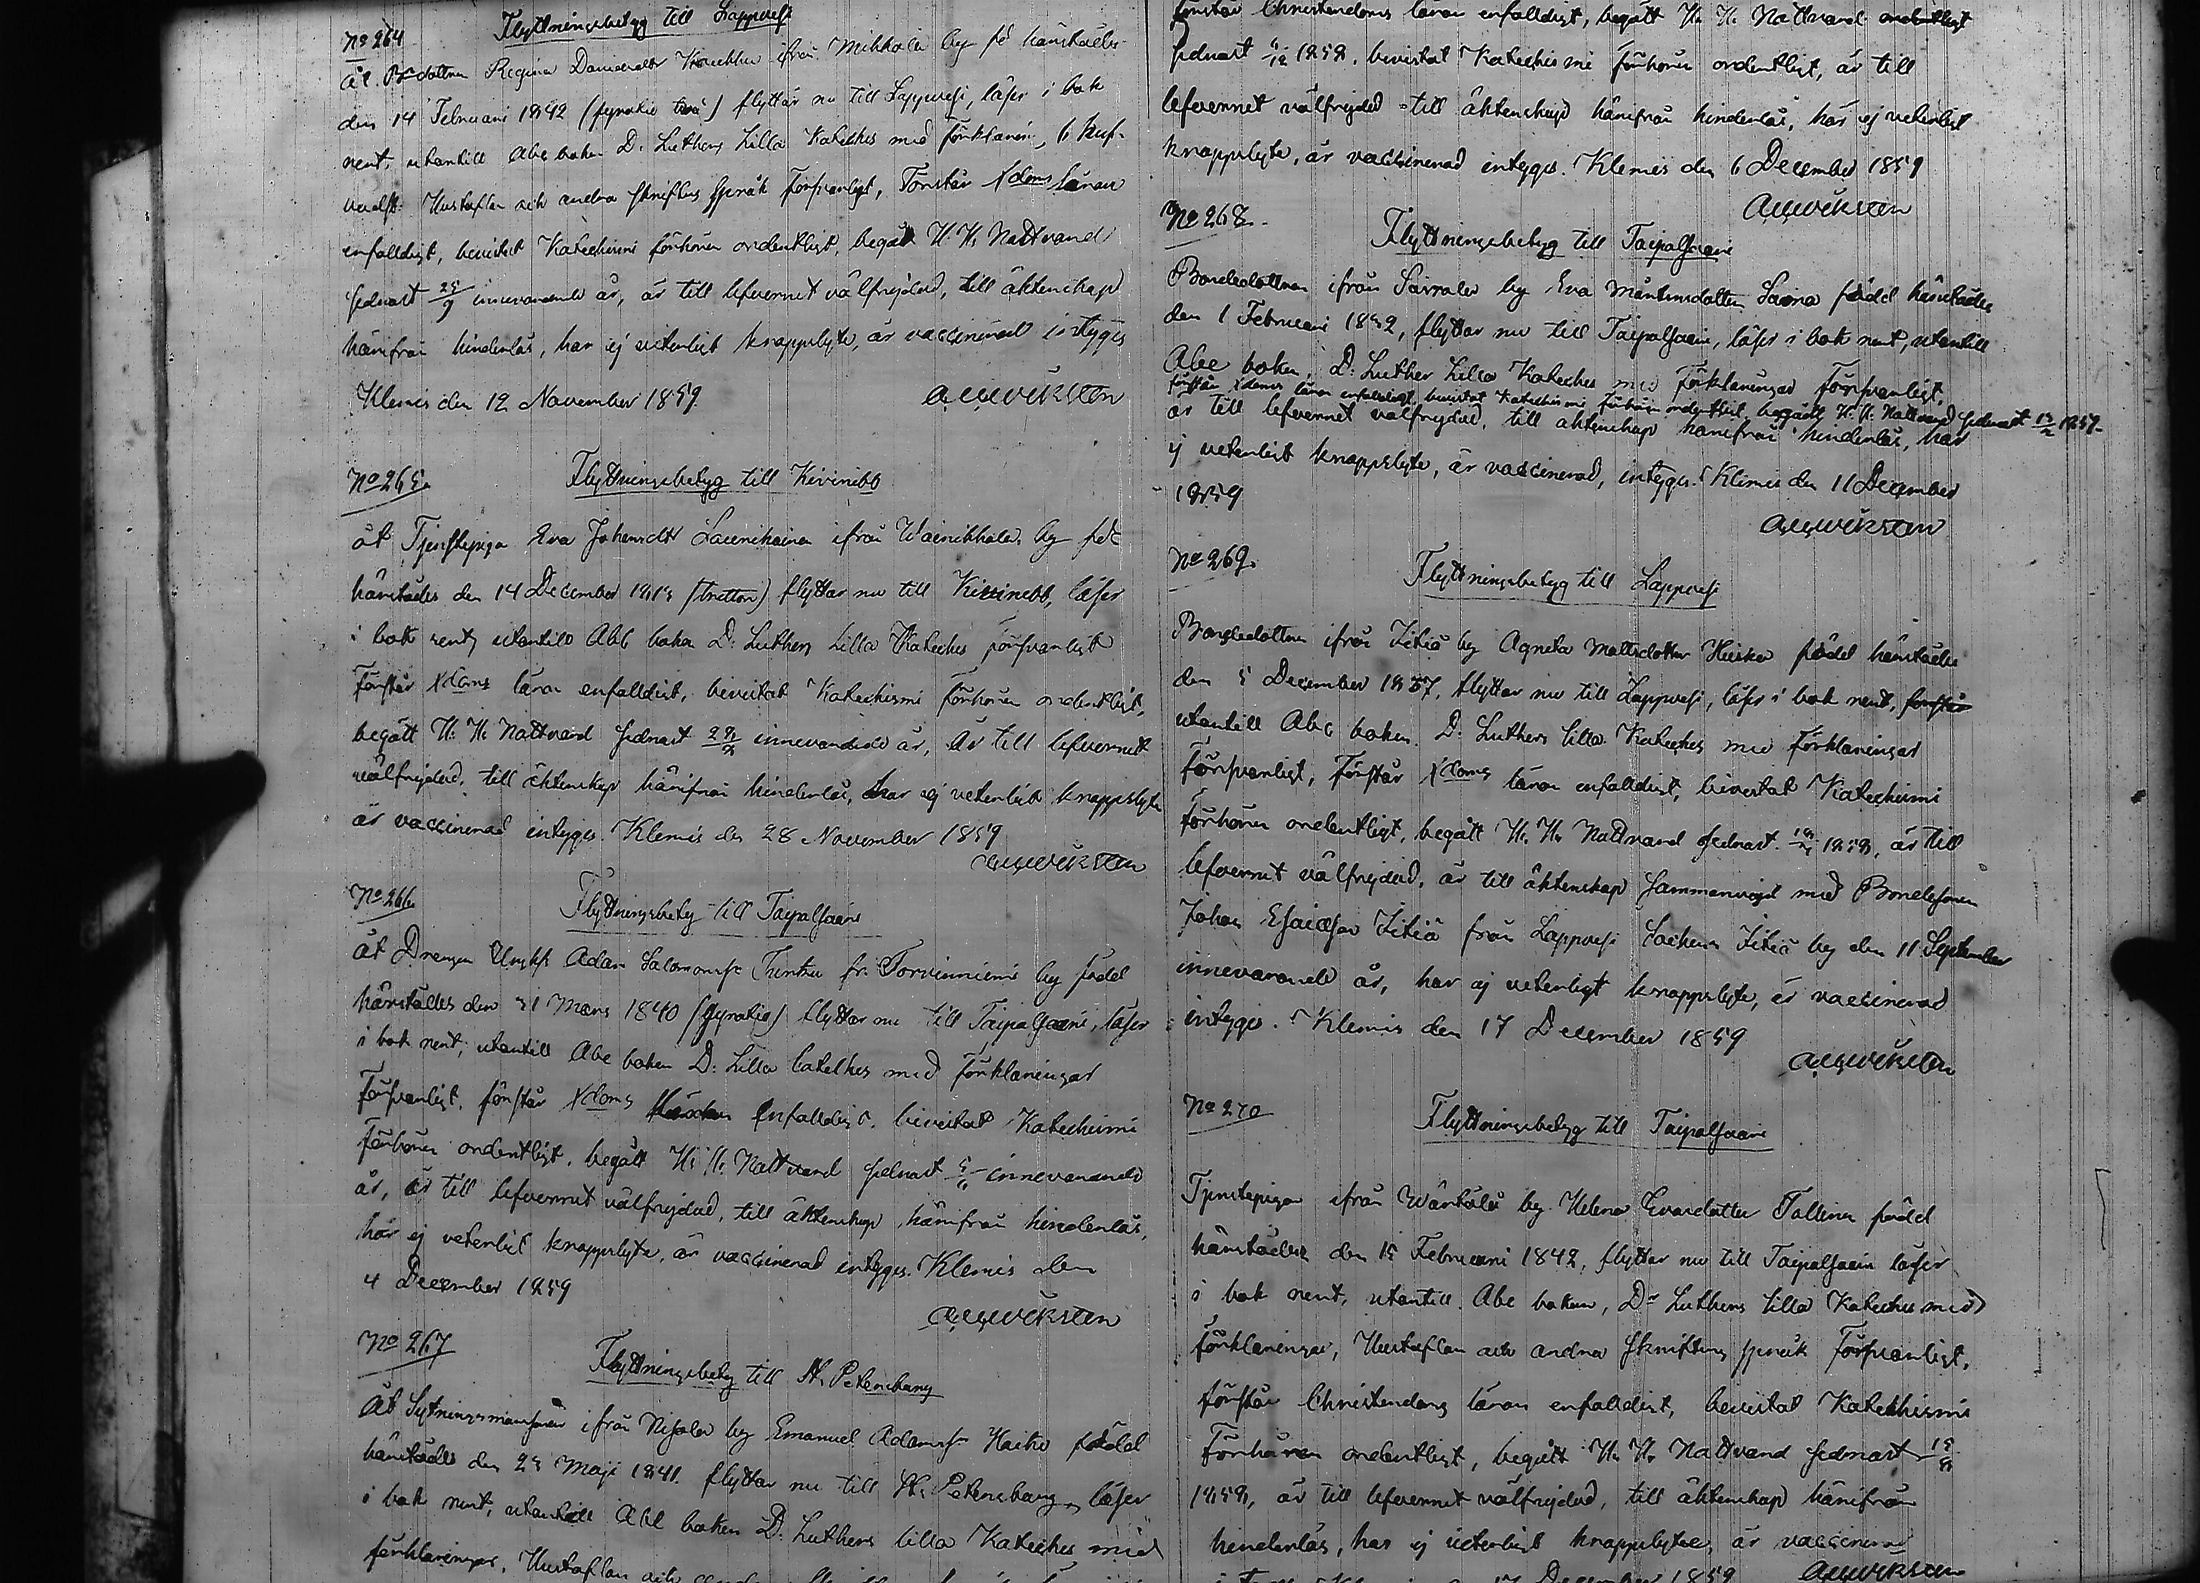 No 264 Flyttningsbetyg till Lappvesi
åt Bdedottren Regina Danielsdtr ifrån Mikkola by fö härstädes
den 14 Februari 1842 (fyratio två) flyttar nu till Lappvesi, läser i bok
rent, utantill Abc boken D. Luthers Lilla Kateches med förklarin,
Hustaflan och andra skriftens språk försvarligt, Förstår Xdoms läran
enfalldigt, bevistat Katechismi förhören ordentligt, begått H. H. Nattvard
sednast innevarande år, är till lefvernet välfrejdad, till äktenskap
härifrån hinderlös, har ej veterligt knapplyte, är vaccinerad intygas
Klemis den 12 November 1859. A. G. Wikstén
No 265. Flyttningsbetyg till Kivinebb
åt Tjenstepigan Eva Johansdtr Laurikainen ifrån Wainikkala by född
härstädes den 14 December 1813 (tretton) flyttar nu till Kivinebb, läser
i bok rent, utantill Abc boken D. Luthers Lilla Kateches försvarligt
förstår Xdoms läran enfalldigt, bevistat Katechismi förhören ordentligt,
begått H. H. Nattvard sednast innevarande år, är till lefvernet
välfrejdad, till äktenskap härifrån hinderlös, har ej veterligt knapplyte
är vaccinerad intygas Klemis den 28 November 1859
A. G. Wikstén
No 266. Flyttningsbetyg till Taipalsaari
åt Drengen Ungkl Adam Salomonsson fr. Torvinniemi by född
härstädes den 31 Mars 1840 (fyratio) flyttar nu till Taipalsaari, läser
i bok rent, utantill Abc boken D. Lilla Catelhes med förklaringar
försvarligt, förstår Xdoms enfalldigt, bevistat Katechismi
förhören ordentligt, begått H. H. Nattvard sednast innevarande
år, är till lefvernet välfrejdad, till äktenskap härifrån hinderlös,
har ej veterligt knapplyte, är vaccinerad intygas. Klemis den
4 December 1859
A. G. Wikstén
No 267 Flyttningsbetyg till St. Petersburg
åt Sytningsmanssonen ifrån Nisola by Emanuel Adamss Haiko född
härstädes den 23 Maji 1841. flyttar nu till St. Petersburg, läser
i bok rent, utantill Abc boken D. Luthers lilla Kateches med
förklaringar, Hustaflan och
förstår Christendoms läran enfalldigt, begått H. H. Nattvard ordentligt
sednast 1858, bevistat Katechismi förhören ordentligt, är till
lefvernet välfrejdad till äktenskap härifrån hinderlös, har ej veterligt
knapplyte, är vaccinerad intygas. Klemis den 6 December 1859
A. G. Wikstén
No 268. Flyttningsbetyg till Taipalsaari
Bondedottren ifrån Sarvalax by Eva Mårtensdotter född härstädes
den 1 Februari 1832, flyttar nu till Taipalsaari, läser i bok rent, utantill
Abc boken, D. Luther Lilla Kateches med Förklaringar försvarligt,
förstår Xdoms läran enfalldigt, bevistat Katechismi förhören ordentligt, begått H. H. Nattvard sednast 1859
är till lefvernet välfrejdad, till äktenskap härifrån hinderlös, har
ej veterligt knapplyte, är vaccinerad, intygas. Klemis den 11 December
1859
A. G. Wikstén
No 269. Flyttningsbetyg till Lappvesi
Bondedottren ifrån Zitiä by Agneta Mattsdotter född härstädes
den 5 December 1837, flyttar nu till Lappvesi, läser i bok rent,
utantill Abc boken. D. Luthers lilla Kateches med Förklaringar
försvarligt, förstår Xdoms läran enfalldigt, bevistat Katechismi
förhören ordentligt, begått H. H. Nattvard sednast 1858, är till
lefvernet välfrejdad, är till äktenskap sammanvigd med Bondesonen
Johan Esaiasson Zitiä från Lappvesi Socken Zitiä by den 11 September
innevarande år, har ej veterligt knapplyte, är vaccinerad
intygas. Klemis den 17 December 1859
A. G. Wikstén
No 270 Flyttningsbetyg till Taipalsaari
Tjenstepigan ifrån Wärtälä by Helena Evasdotter född
härstädes den 15 Februari 1842, flyttar nu till Taipalsaari läser
i bok rent, utantill Abc boken, Dr Luthers lilla Kateches med
förklaringar, Hustaflan och andra skriftens språk försvarligt,
förstår Christendoms läran enfalldigt, bevistat Katekhismi
Förhören ordentligt, begått H. H. Nattvard sednast
1858, är till lefvernet välfrejdad, till äktenskap härifrån
hinderlös, har ej veterligt knapplyte, är vaccinerad
17 December 1859 A. G. Wikstén